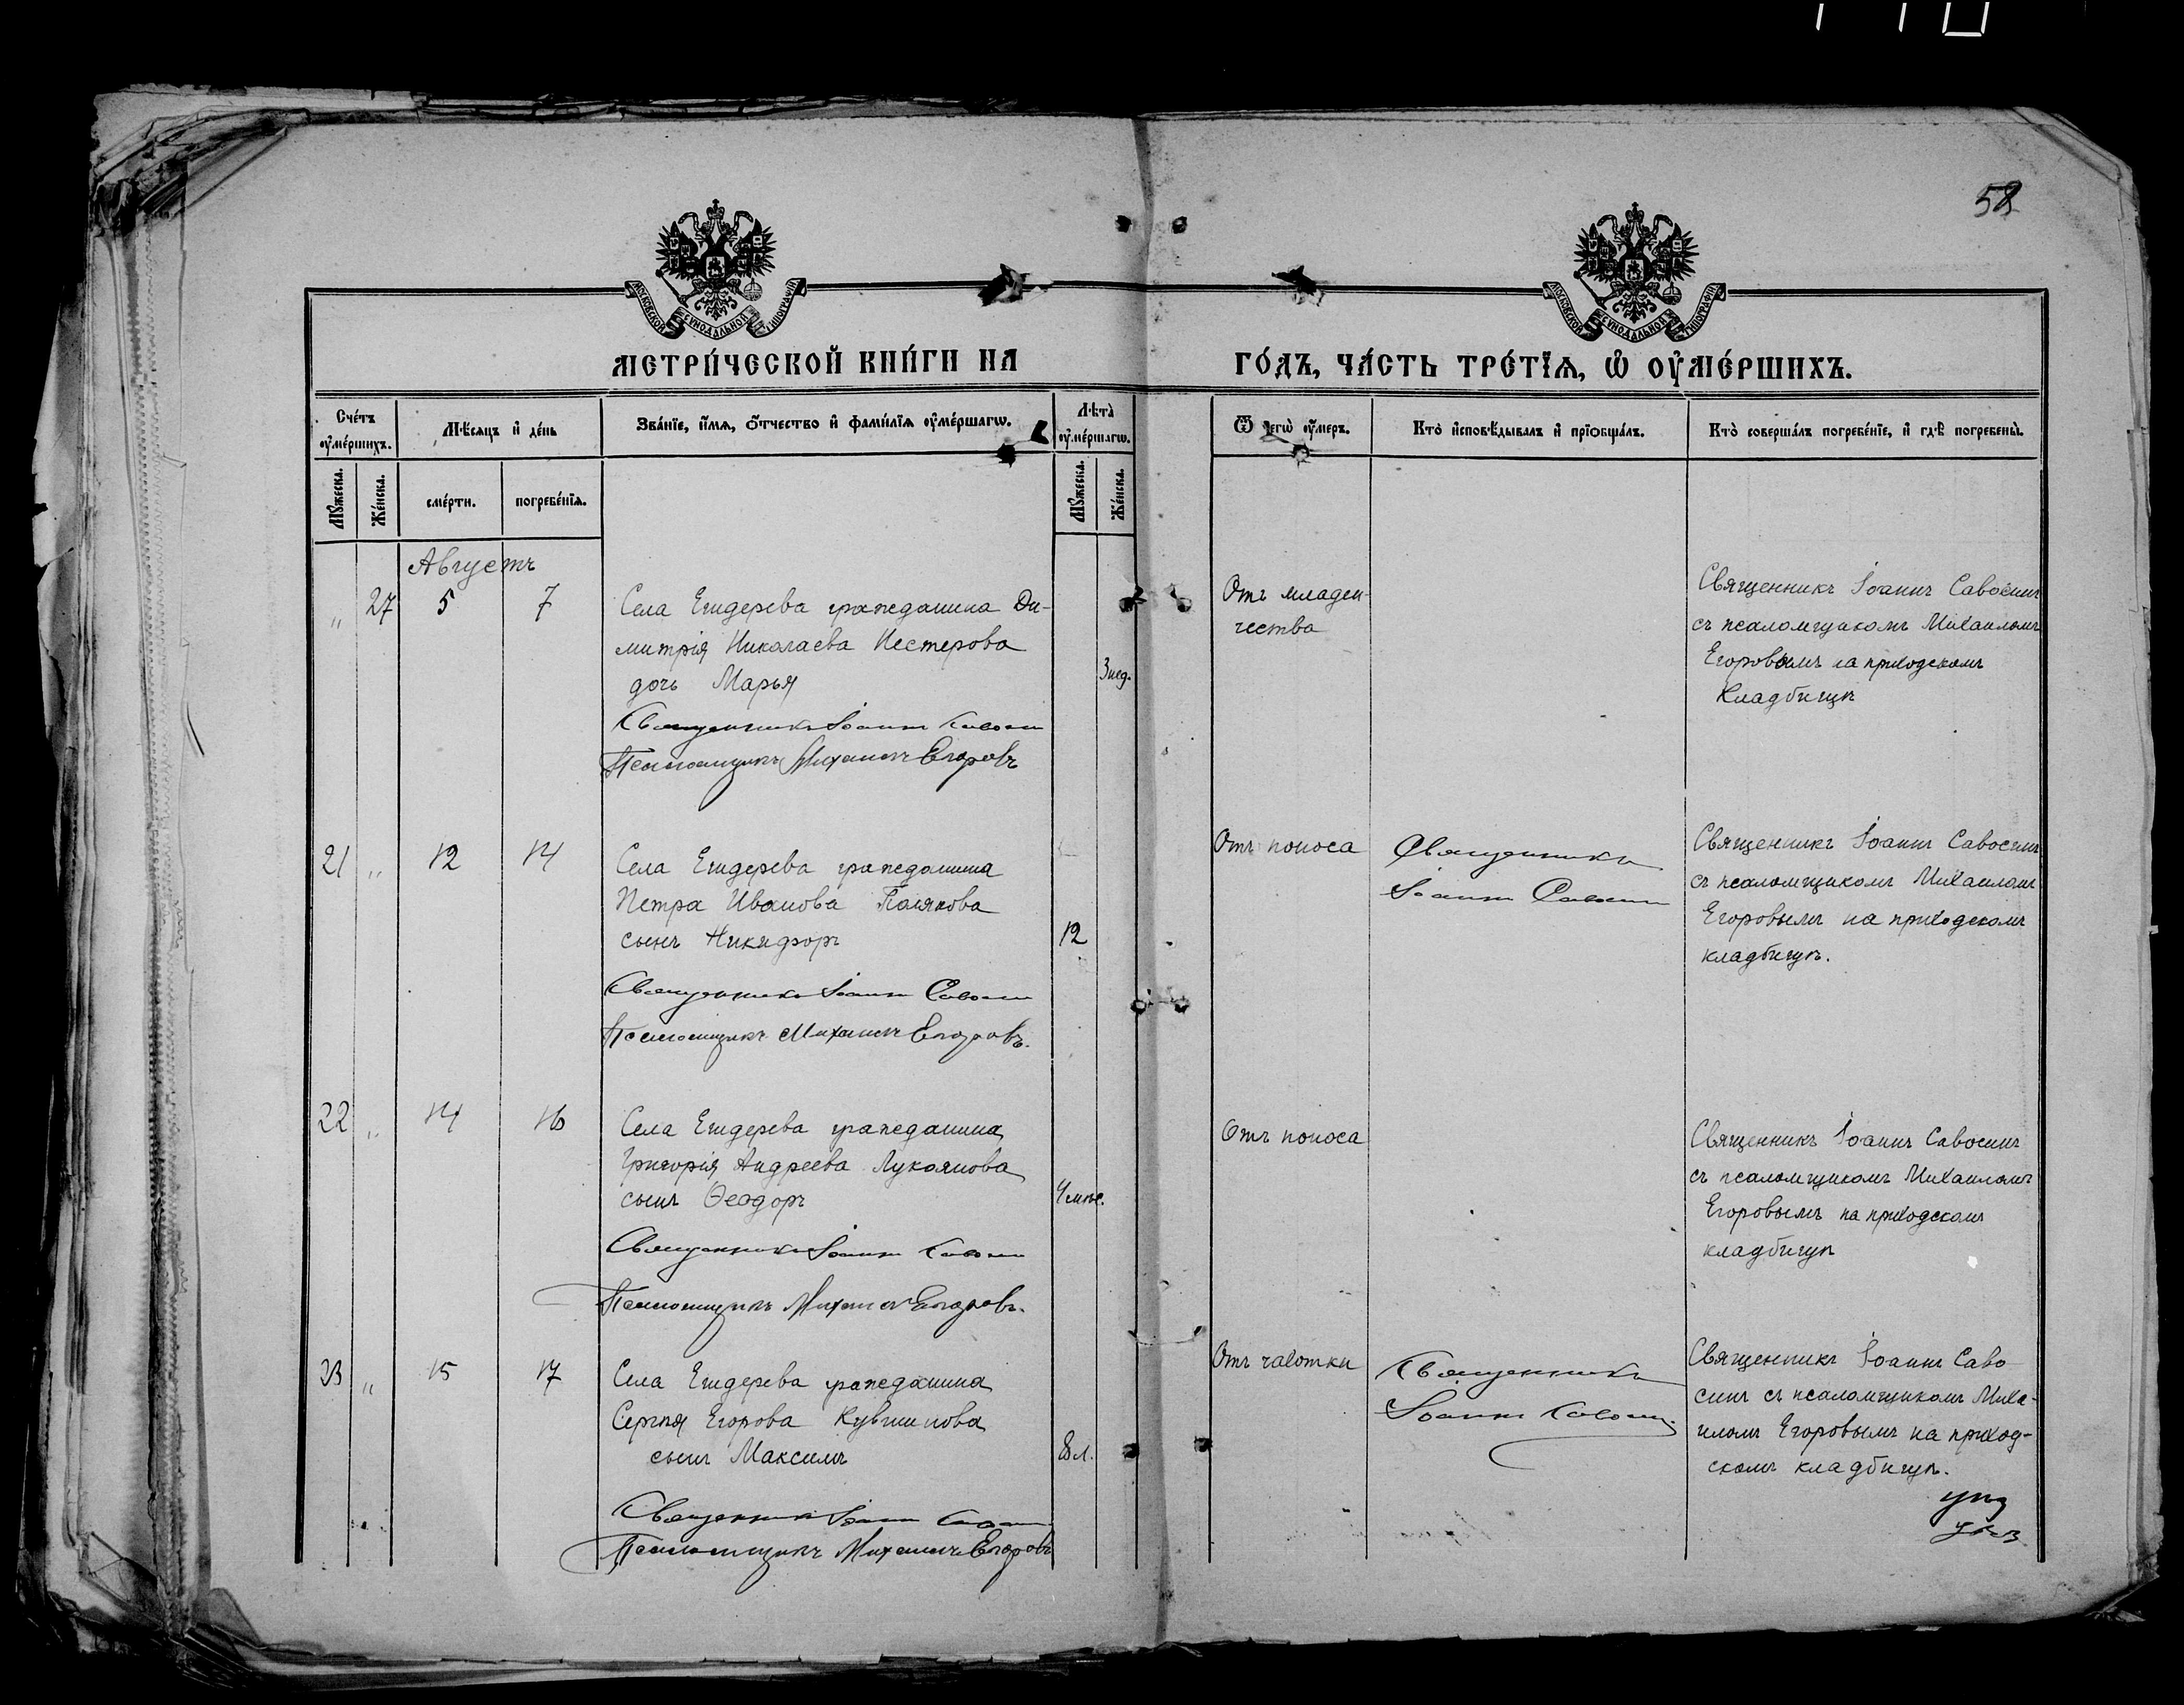 58
МОСКОВСКОЙ СѴНОДАЛЬНОЙ ТИПОГРАФІИ
МОСКОВСКОЙ СѴНОДАЛЬНОЙ ТИПОГРАФІИ
МЕТРИ́ЧЕСКОЙ КНИ́ГИ НА ГО́ДЪ, ЧА́СТЬ ТРЕ́ТІѦ, Ѽ ОУ҆МЕ́РШИХЪ.
Сче́тъ оу҆ме́ршихъ.
Мѣ́сяцъ и҆ де́нь
Зва́нїе, и҆́мѧ, ѻ҆́тчество и҆ фами́лїѧ оу҆ме́ршагѡ.
Лѣта̀ оу҆ме́ршагѡ.
Ѿ чегѡ̀ оу҆́меръ.
Кто̀ и҆сповѣ́дывалъ и҆ прїѻбща́лъ.
Кто̀ соверша́лъ погребе́нїе, и҆ гдѣ̀ погребены̀.
Мꙋ́жеска. Же́нска. сме́рти. погребе́нїѧ. Мꙋ́жеска. Же́нска.
Августъ
„ 27 5 7
Села Ендерева гражданина Ди-
митрія Николаева Нестерова
дочь Марья
3 нед.
Священникъ Іоаннъ Савосин
Псаломщикъ Михаилъ Егоровъ
Отъ младен-
чества
Священникъ Іоаннъ Савосинъ
съ псаломщикомъ Михаиломъ
Егоровымъ на приходскомъ
кладбищѣ
21 „ 12 14
Села Ендерева гражданина
Петра Иванова Полякова
сынъ Никифоръ
12
Священникъ Іоаннъ Савосин
Псаломщикъ Михаилъ Егоровъ.
Отъ поноса
Священникъ
Іоаннъ Савосин
Священникъ Іоаннъ Савосинъ
съ псаломщикомъ Михаиломъ
Егоровымъ на приходскомъ
кладбищѣ.
22 „ 14 16
Села Ендерева гражданина
Григорія Андреева Лукоянова
сынъ Ѳеодоръ
4 мѣс.
Священникъ Іоаннъ Савосин
Псаломщикъ Михаилъ Егоровъ.
Отъ поноса
Священникъ Іоаннъ Савосинъ
съ псаломщикомъ Михаиломъ
Егоровымъ на приходскомъ
кладбищѣ
23 „ 15 17
Села Ендерева гражданина
Сергѣя Егорова Кувшинова
сынъ Максимъ
8 л.
Священникъ Іоаннъ Савосин
Псаломщикъ Михаилъ Егоровъ
Отъ чахотки
Священникъ
Іоаннъ Савосин.
Священникъ Іоаннъ Саво
синъ съ псаломщикомъ Миха-
иломъ Егоровымъ на приход-
скомъ кладбищѣ.